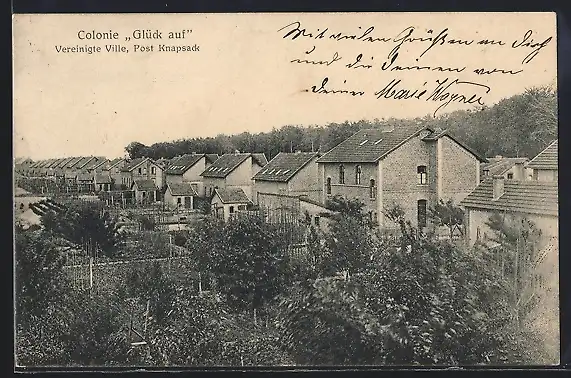 Colonie „Glück auf"
Vereinigte Ville, Post Knapsack
Mit vielen Grüßen an Dich
und die Deinen von
Deiner Marie Wagner